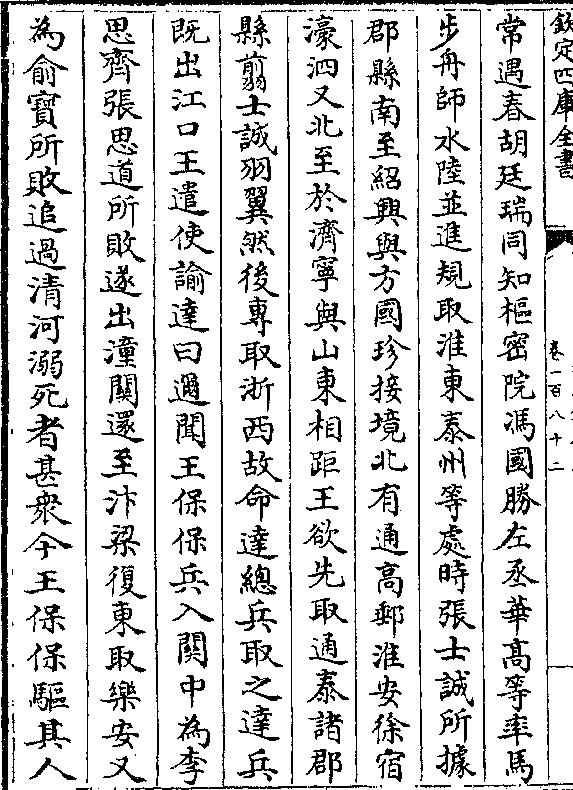 欽定四庫全書
卷一百八十二
常遇春胡廷瑞同知樞密院馮國勝左丞華髙等率馬
步舟師水陸並進規取淮東泰州等處時張士誠所據
郡縣南至紹興與方國珍接境北有通髙郵淮安徐宿
濠泗又北至於濟寧與山東相距王欲先取通泰諸郡
縣翦士誠羽翼然後專取浙西故命達總兵取之達兵
既出江口王遣使諭達曰邇聞王保保兵入關中為李
思齊張思道所敗遂出潼關還至汴梁復東取樂安又
為俞寶所敗追過清河溺死者甚衆今王保保驅其人